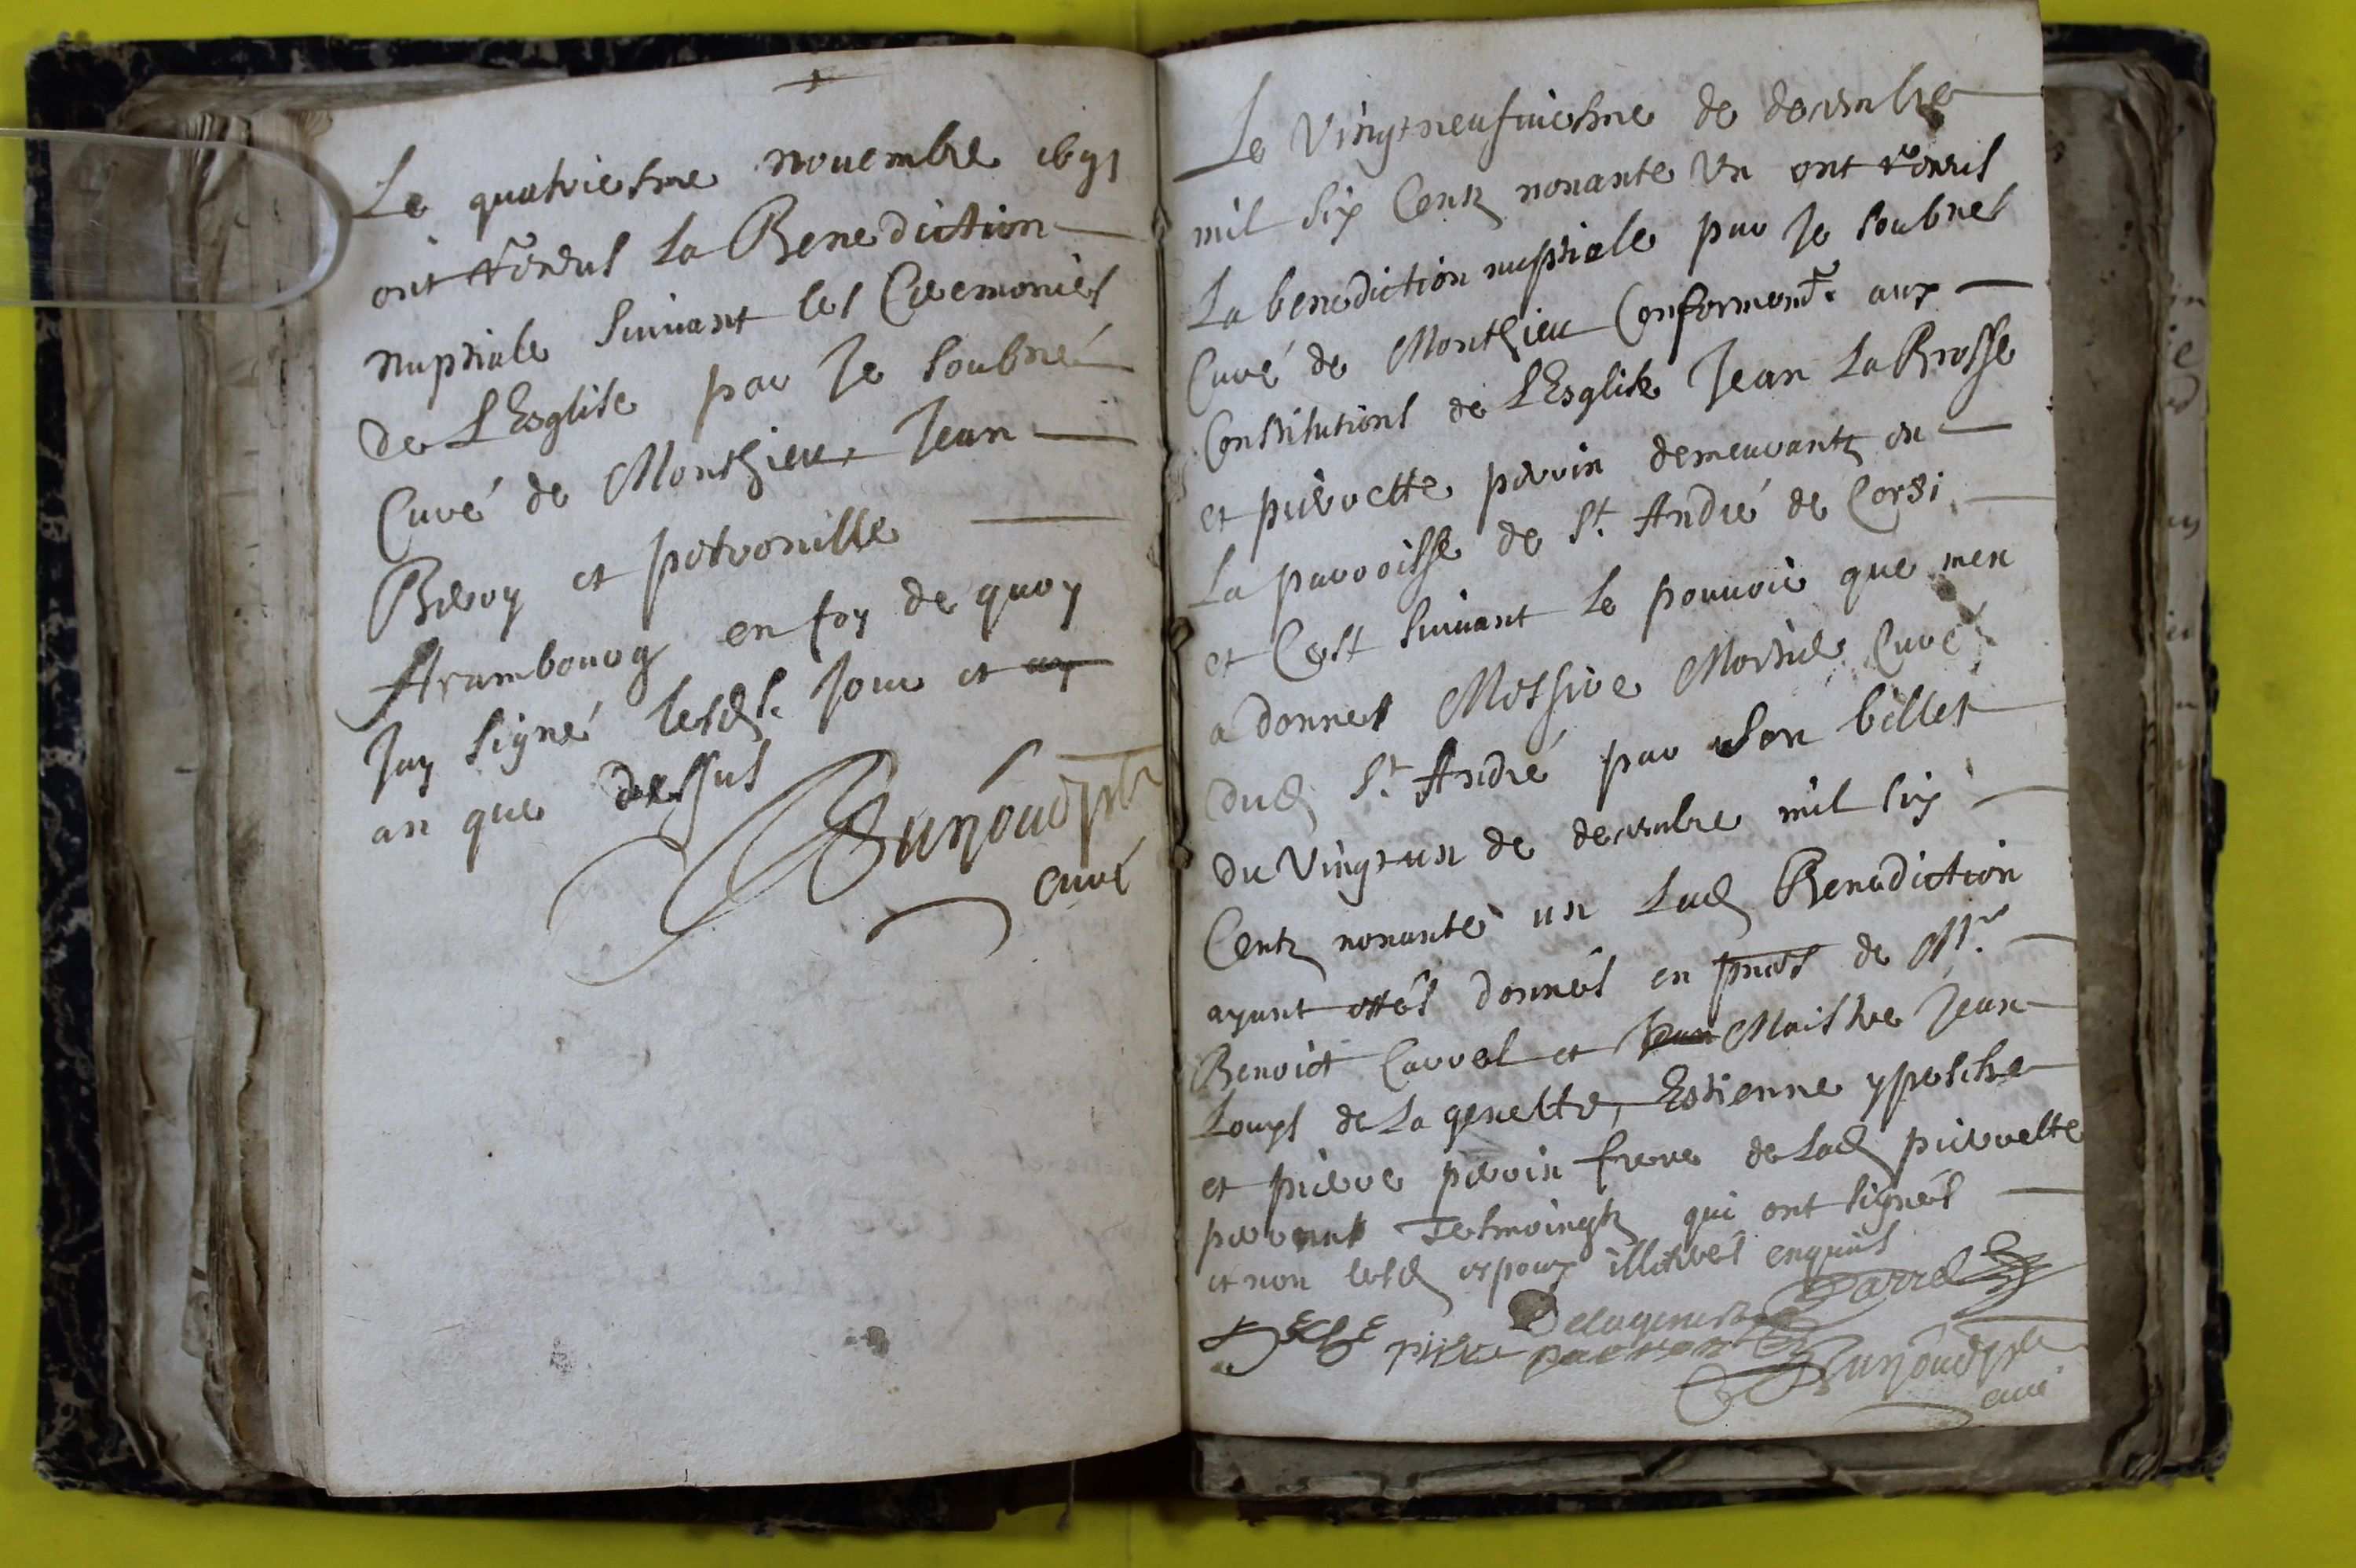 Le quatriesme novembre 1691
ont receus La Benediction
nuptiale suivant les Ceremonies
de L'Esglise par Je soubnė
Curé de Monthieu, Jean
Beroy et petronille
Arambourg en foy de quoy
Jay signé lesd. Jour et
an que dessus
curé
Le vingt neufviesme de decembre
mil six Centz nonante Un ont receus
La benediction nuptiale par Je soubnes
Curé de Monthieu Conformemt. aux
Constitutions de L'Esglise Jean La Brosse
et pierrette perrin demeurantz en
La parroisse de St. André de Corsi
et C'est suivant le pouvoir que men
a donnes Messire Curé
dud St. André par son billet
du vingt un de decembre mil six
Centz nonante un Lad Benediction
ayant estés donnés en pnces de Mr.
Benoict Carrel et Jean Maistre Jean
Louys de La genette, Estienne ypesche
et pierre perrin frere de Lad pierrette
perrin tesmoingtz qui ont signés
et non lesd espoux illitérés enquis
Carrel
Delagenette
pierre
curé